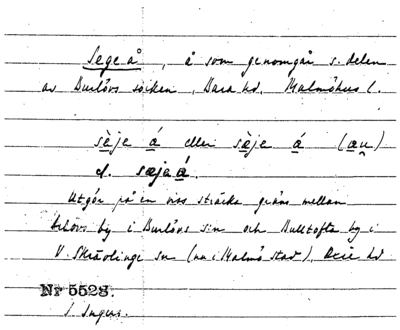 Sege å, å som genomgår s. delen
av Burlövs socken, Bara hd, Malmöhus l.
sèje á eller sèje á (au̯)
el. sæjaá.
Utgör på en viss sträcka gräns mellan
Arlövs by i Burlövs sn och Bulltofta by i
V. Skrävlinge sn (nu i Malmö stad), Oxie hd
Nr 5528.
I. Ingers.